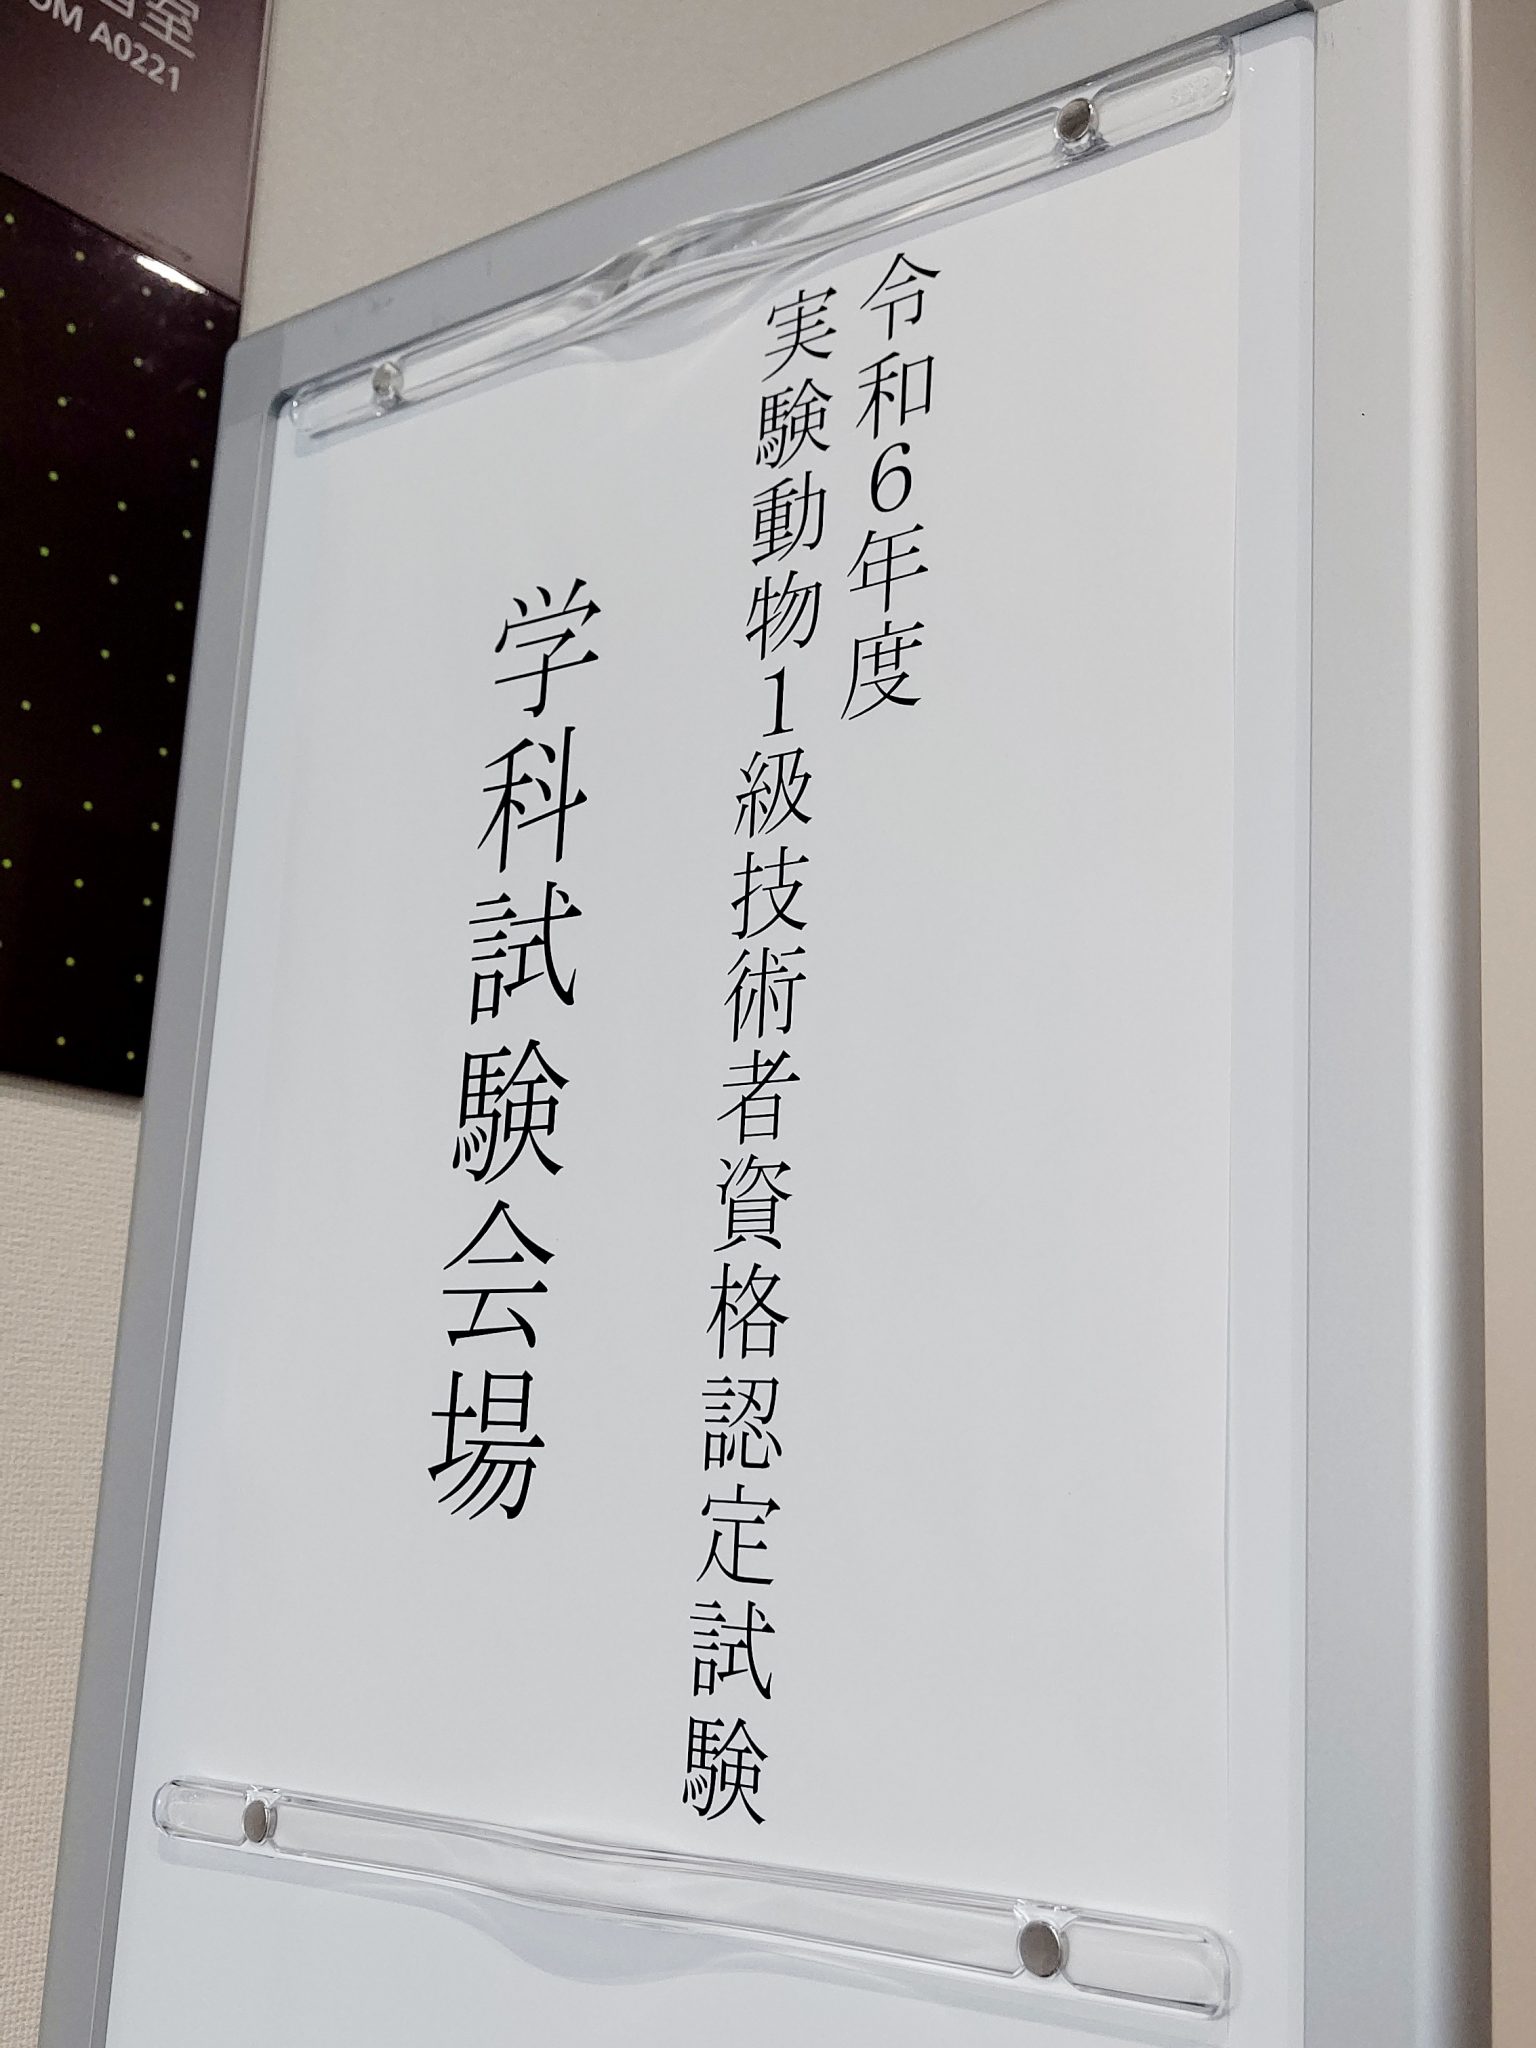 令和6年度
実験動物1級技術者資格認定試験
学科試験会場
室
A0221